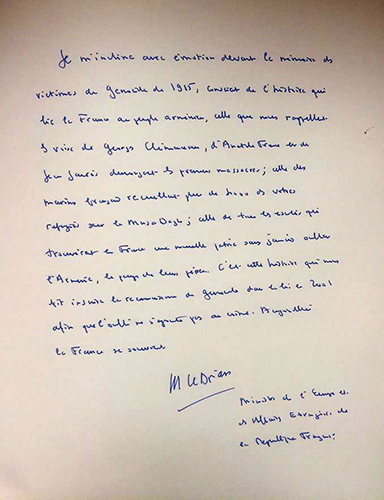 Je m'incline avec émotion devant la mémoire des
victimes du Génocide de 1915, de l'histoire qui
lie la France au peuple arménien, celle que nous rappellent
les voix de Georges Clémenceau, d'Anatole France et de
Jean Jaurès dénonçant les premiers massacres ; celle des
marins français recueillant plus de 4000 de votre
réfugiés sur le Musa Dagh ; celle de tous les exilés qui
trouvèrent en France une nouvelle patrie sans jamais oublier
l'Arménie, le pays de leurs pères. C'est cette histoire qui nous
fit inscrire la reconnaissance du génocide dans la loi en 2001
afin que l'oubli ne s'ajoute pas au crime. Aujourd'hui
la France se souvient
Le Drian
Ministre de l'Europe et
des Affaires Etrangères de
la République Française